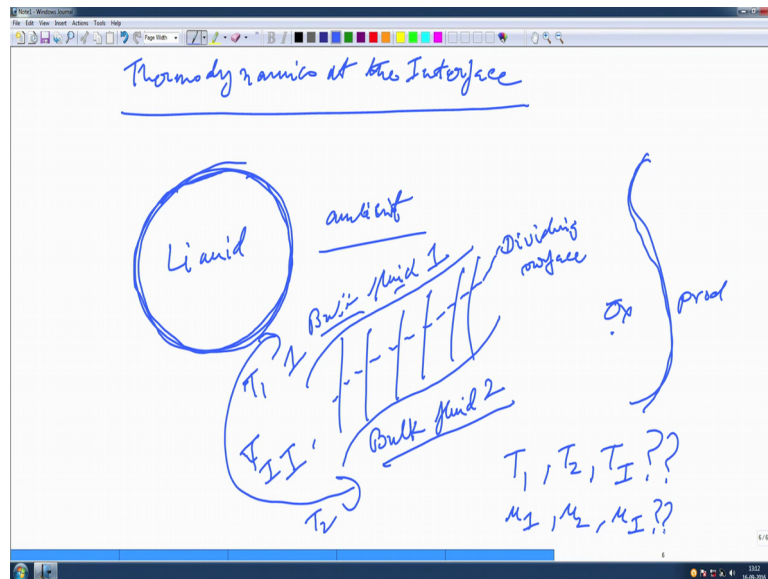 Note1 - Windows Journal
File Edit View Insert Actions Tools Help
Page Width
B I
Thermodynamics at the Interface
Liquid
ambient
Bulk fluid 1
Dividing
surface
Ox
prod
T1 1
II
Bulk fluid 2
T2
T1, T2, TI ??
μ1, μ2, μI ??
6/6
6
13:12
16-09-2016